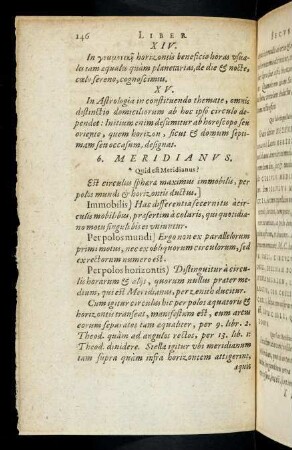 246 LIBER
XIV.
In horizontis beneficio horas vsua-
les tam æquales quàm planetarias, de die & nocte,
cœlo sereno, cognoscimus.
XV.
In Astrologia in constituendo themate, omnis
distinctio domiciliorum ab hoc ipso circulo de-
pendet: Initium enim desumitur ab horoscopo seu
oriente, quem horizon, sicut & domum septi-
mam seu occasum, designat.
6. MERIDIANVS.
Quid est Meridianus?
Est circulus sphæræ maximus immobilis, per
polos mundi & horizontis ductus.]
Immobilis) Hac differentia secernitur à cir-
culis mobilibus, præsertim à coluris, qui quotidia-
no motu singulis
Per polos mundi] Ergo non ex parallelorum
primi motus, nec ex obliquorum circulorum, sed
ex rectorum numero est.
Per polos horizontis) Distinguitur à circu-
lis horarum & alijs, quorum nullus præter med-
ium, qui est Meridianus, per zenith ducitur.
Cum igitur circulus hic per polos æquatoris &
horizontis transeat, manifestum est, eum arcus
eorum separatos tam æqualiter, per 9. libr. 2.
Theod. quàm ad angulos rectos, per 13. lib. 1.
Theod. diuidere. Stella igitur vbi meridianum
tam supra quàm infra horizontem attigerint,